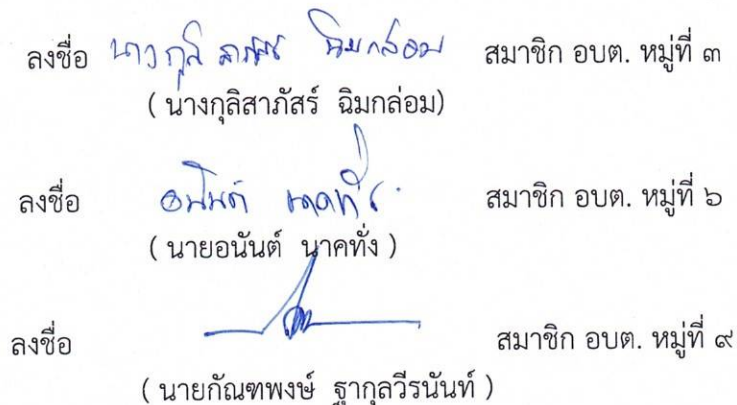 ลงชื่อ นางกุลิสาภัสร์ ฉิมกล่อม สมาชิก อบต. หมู่ที่ ๓
( นางกุลิสาภัสร์ ฉิมกล่อม)
ลงชื่อ อนันต์ นาคทั่ง สมาชิก อบต. หมู่ที่ ๖
( นายอนันต์ นาคทั่ง )
ลงชื่อ สมาชิก อบต. หมู่ที่ ๙
( นายกัณฑพงษ์ ฐากุลวีรนันท์ )